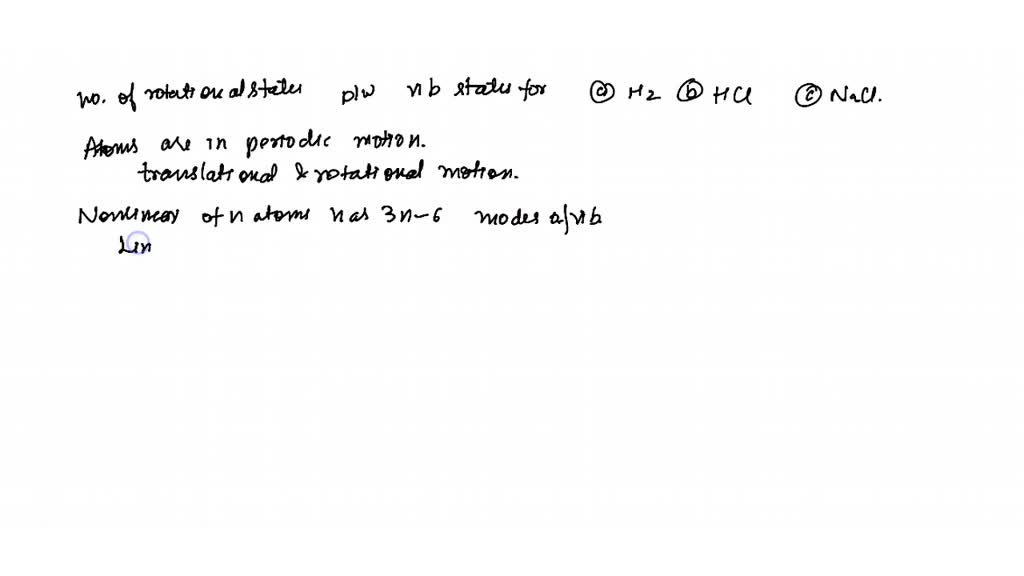 no. of rotational states b/w vib states for ⓐ H2 ⓑ HCl ⓒ NaCl.
Atoms are in periodic motion.
translational & rotational motion.
Nonlinear of n atoms has 3n-6 modes of vib
Lin